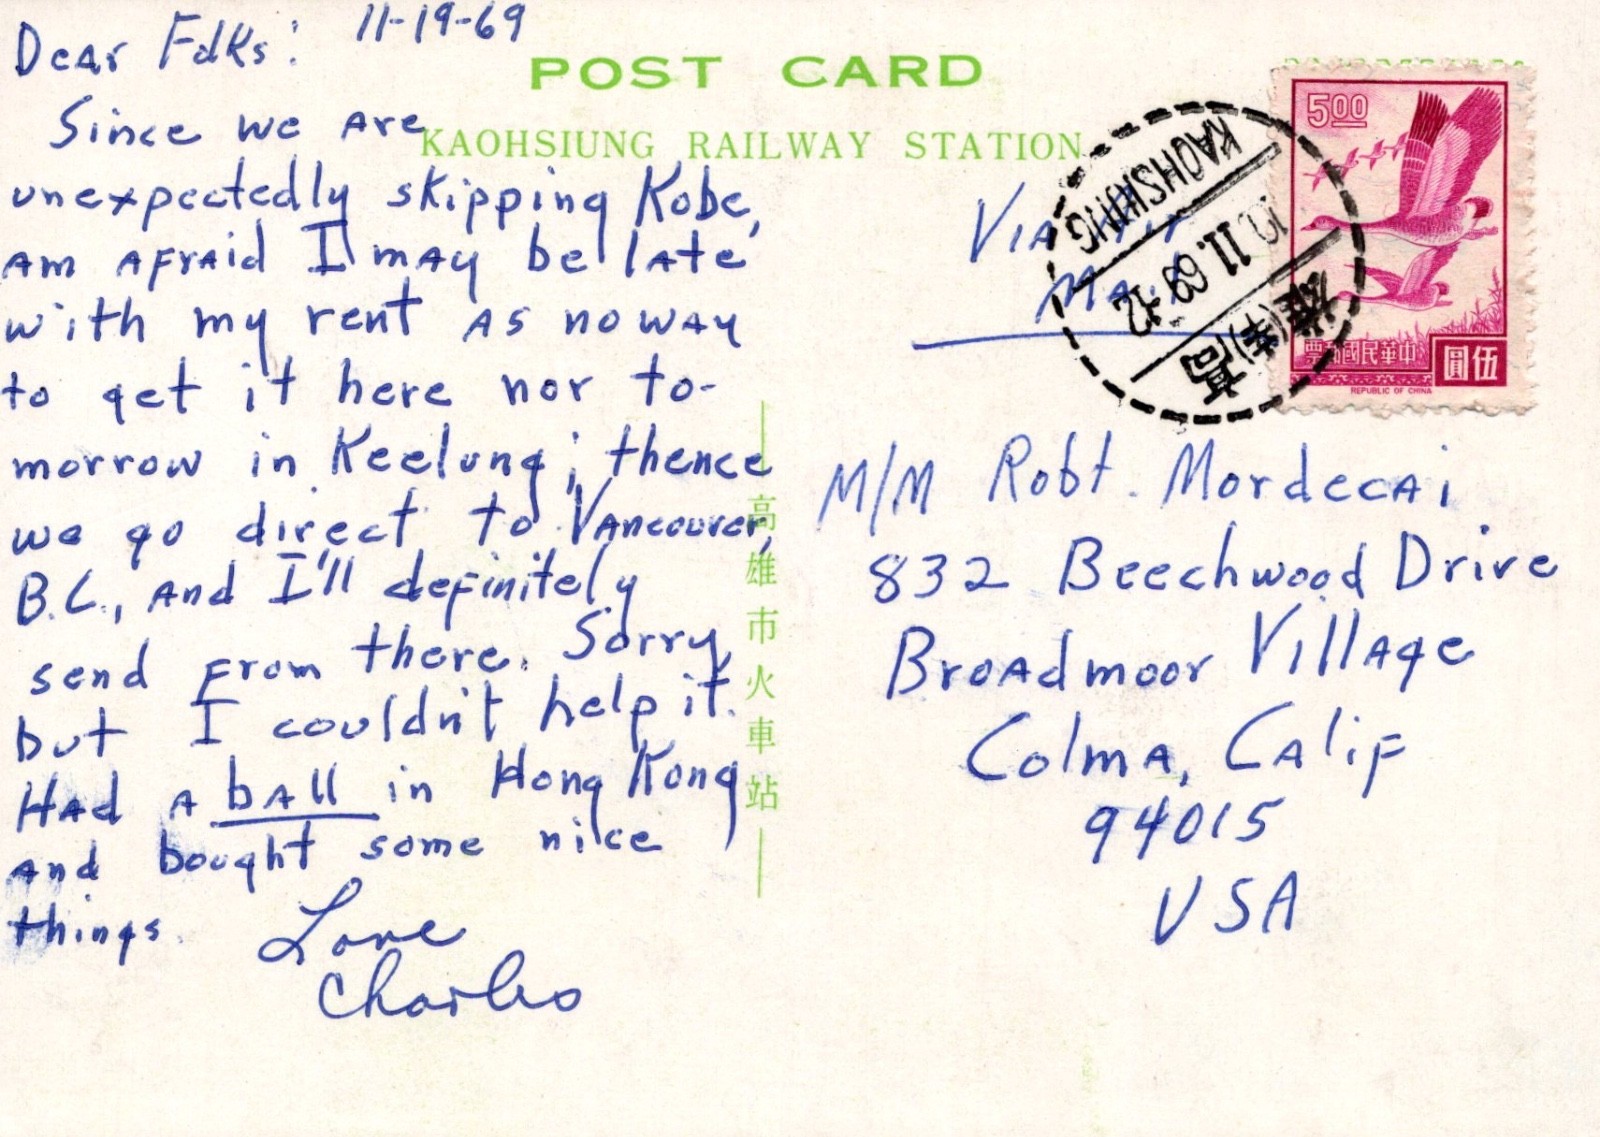 Dear Folks: 11-19-69
Since we are
unexpectedly skipping Kobe,
am afraid I may be late
with my rent as no way
to get it here nor to-
morrow in Keelung; thence
we go direct to Vancouver,
B.C., and I'll definitely
send from there. Sorry
but I couldn't help it.
Had a ball in Hong Kong
and bought some nice
things.
Love
Charles
POST CARD
KAOHSIUNG RAILWAY STATION
高雄市火車站
Via Air
Mail
M/M Robt. Mordecai
832 Beechwood Drive
Broadmoor Village
Colma, Calif
94015
USA
KAOHSIUNG
11.69.12
高雄
5.00
中華民國郵票
伍圓
REPUBLIC OF CHINA